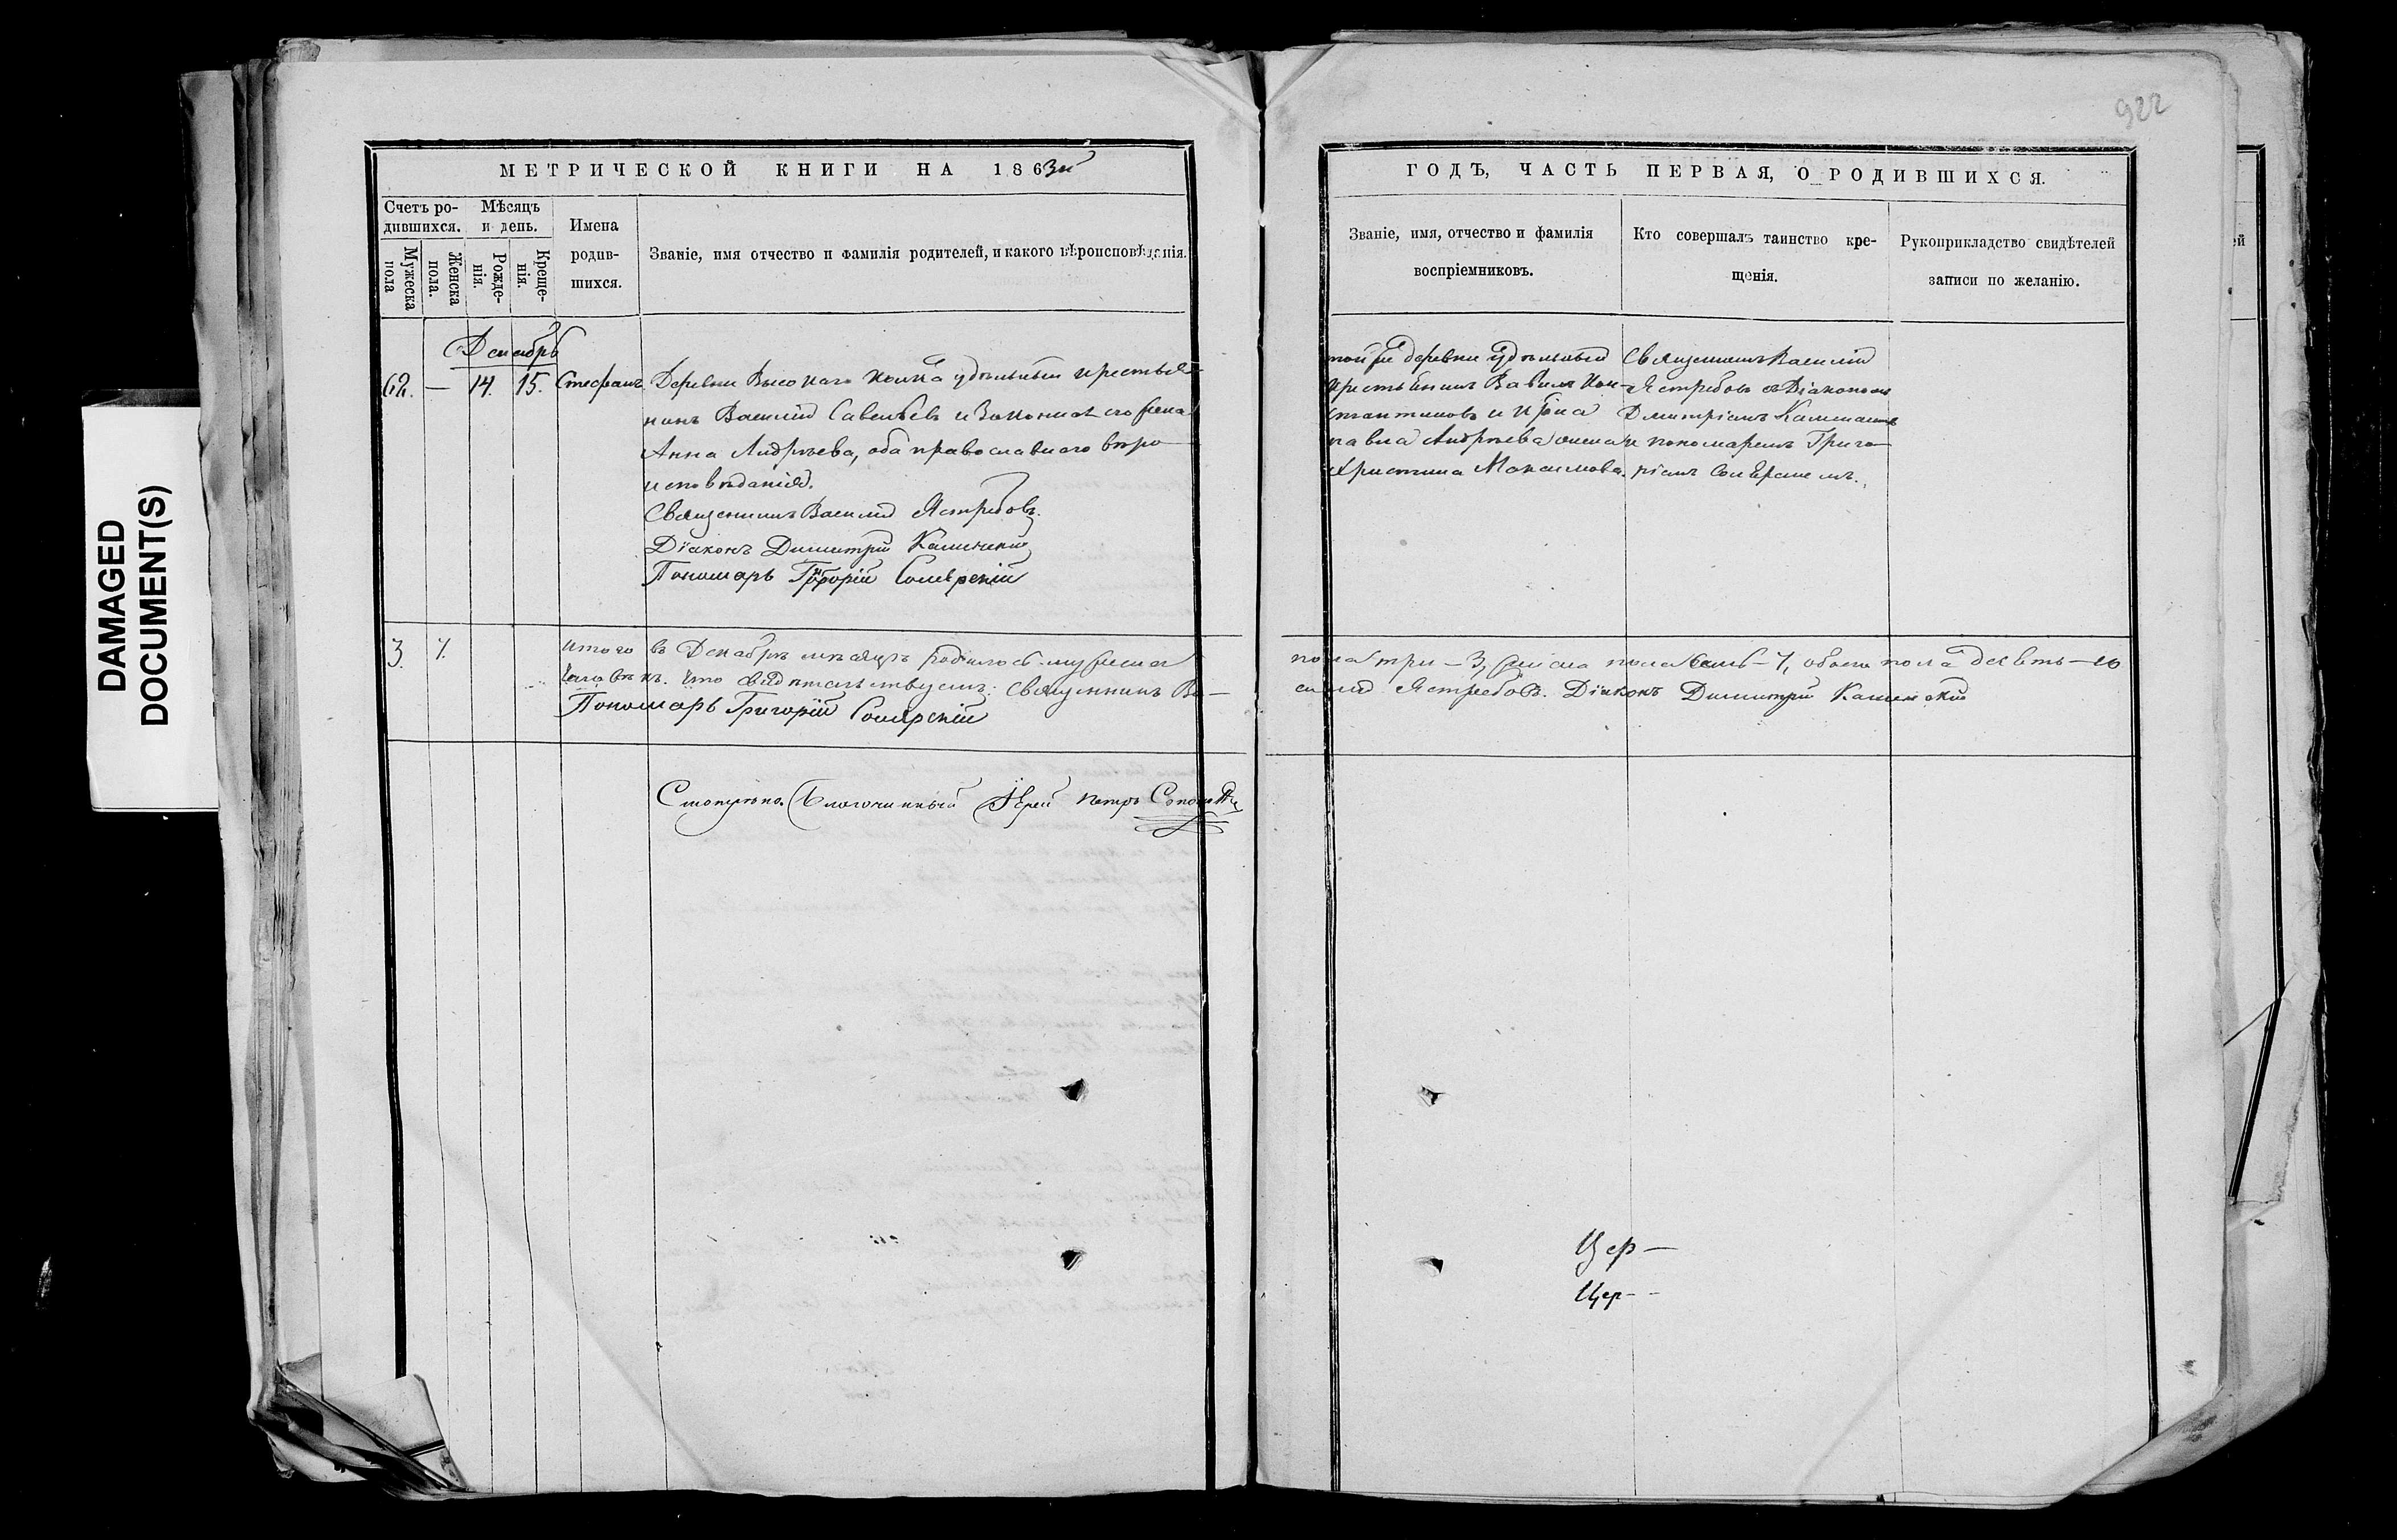 922
DAMAGED
DOCUMENT(S)
МЕТРИЧЕСКОЙ КНИГИ НА 1863й
Счетъ ро-
дившихся.
Мѣсяцъ
и день.
Мужеска
пола
Женска
пола.
Рожде-
нія.
Креще-
нія.
Имена
родив-
шихся.
Званіе, имя отчество и фамилія родителей, и какого вѣроисповѣданія.
Декабрь
62. — 14. 15. Стефанъ
Деревни Высокаго удѣльный крестья-
нинъ Василій Савельевъ и Законная его жена
Анна Андреева, оба православнаго вѣро
исповѣданія.
Священникъ Василій Ястребовъ.
Діаконъ Димитрій Каменскій
Пономарь Григорій
3. 7.
итого въ Декабрѣ мѣсяцѣ родилось мужеска
человѣкъ. Что свидѣтельствуемъ: Священникъ Ва-
Пономарь Григорій
Благочинный Іерей Петръ
ГОДЪ, ЧАСТЬ ПЕРВАЯ, О РОДИВШИХСЯ.
Званіе, имя, отчество и фамилія
воспріемниковъ.
Кто совершалъ таинство кре-
щенія.
Рукоприкладство свидѣтелей
записи по желанію.
той же деревни удѣльный
крестьянинъ Вавилъ Кон-
стантиновъ и
Андреева жена
Христина Максимова.
Священникъ Василій
Ястребовъ съ Діакономъ
Дмитріемъ
и пономаремъ Григо-
ріемъ
пола три — 3, женска пола семь — 7, обоего пола — 10
силій Ястребовъ. Діаконъ Димитрій Каменскій
Цер —
Цер - -